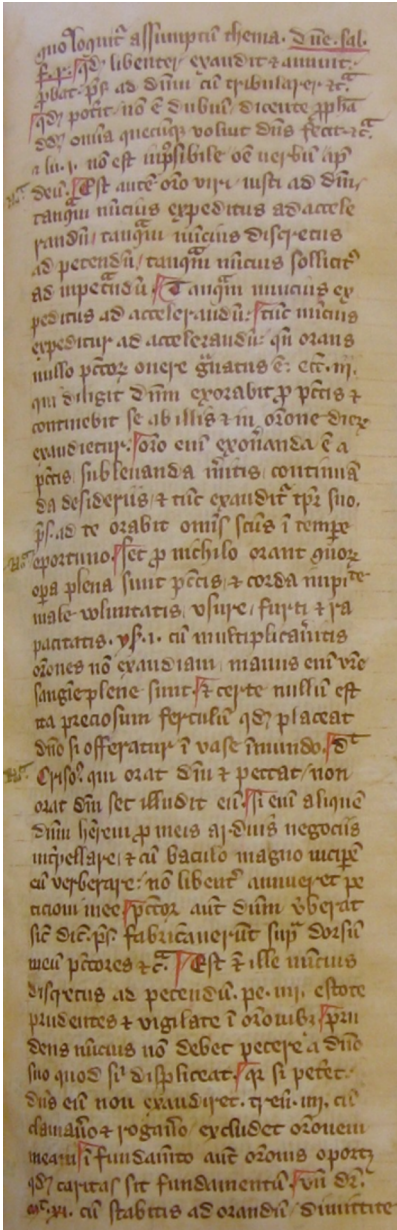 quo loquit̄ assūmptū thema. dn̄e. sal.
f. r. qd̛ libenter exaudit ⁊ annuit.
p̱bat. ps̄ ad dn̄m cū tribularer ⁊c̄
qd̛ potit nō ē dubiū dicente ꝓph̄a
dd̛ om̄ia quecūqꝫ voluit dn̄s fecit. ⁊c̄
a lu. i. nō est īpossibile oē uerbū apd̛
deū. Est autē or̄o viri iusti ad dn̄m
tanqūa nūcius expeditus ad accele
randū/ tanqūa nūcius discretus
ad petendū/ tanqūa nūcius sollicitꝰ
ad inpetn̄dū. Tanqūa nuncius ex
peditus ad accelerandū: tūc nūcius
expeditur ad accelerandū: qn̄ orans
nullo pctōꝝ onere gͣuatus ē. ecc̄. iii.
qui diligit dn̄m exorabit ꝓ pctīs ⁊
continebit se ab illis ⁊ in or̄one dieꝝ
exaudietur. or̄o enī exon̄anda ē a
pctīs/ subleuanda m̄itis/ continuā
da desideriis/ ⁊ tūc exaudit̄ tp̄r suo.
ps̄. ad te orabit om̄is sc̄us ī tempe
oportuno. set ꝓ nichilo orant quoꝝ
oꝑa plena sunt pctīs/ ⁊ corda
male voluntatis/ vsure/ furti ⁊ ra
pacitatis. ys̄. i. cū multiplicau̓itis
or̄ones nō exaudiam/ manus enī vr̄e
sangīe plene sunt. ⁊ certe nullū est
ita preciosum ferculū qd̛ placeat
dn̄o si offeratur ī vase īmundo. dt̄
Crisoꝰ. qui orat dn̄m ⁊ peccat/ non
orat dn̄m set illudit eū. si enī aliquē
dn̄m h̄rem ꝓ meis arduis negociis
īt̓pellare/ ⁊ cū baculo magno inciꝑē
eū verberare: nō libent̓ annueret pe
ticioni mee pctōr aut̄ dn̄m v̓berat
sic̄ dic̄. ps̄. fabricauerūt supͣ dorsū
meū pctōres ⁊ c̄. Est ⁊ ille nūcius
discretus ad petendū. pe. iiii. estote
prudentes ⁊ vigilate ī or̄onibꝫ. pru
dens nūcius nō debet petere a dn̄o
suo quod sī displiceat. qr̄ si petet.
dn̄s eū non exaudiret. treū. iii. cū
clamauō ⁊ rogauō/ excludet or̄onem
meam. ī fundam̄to aut̄ or̄onis oportꝫ
qd̛ caritas sit fundamentū. vn̄ dr̄.
mͬ. xi. cū stabitis ad orandū/ dimittite